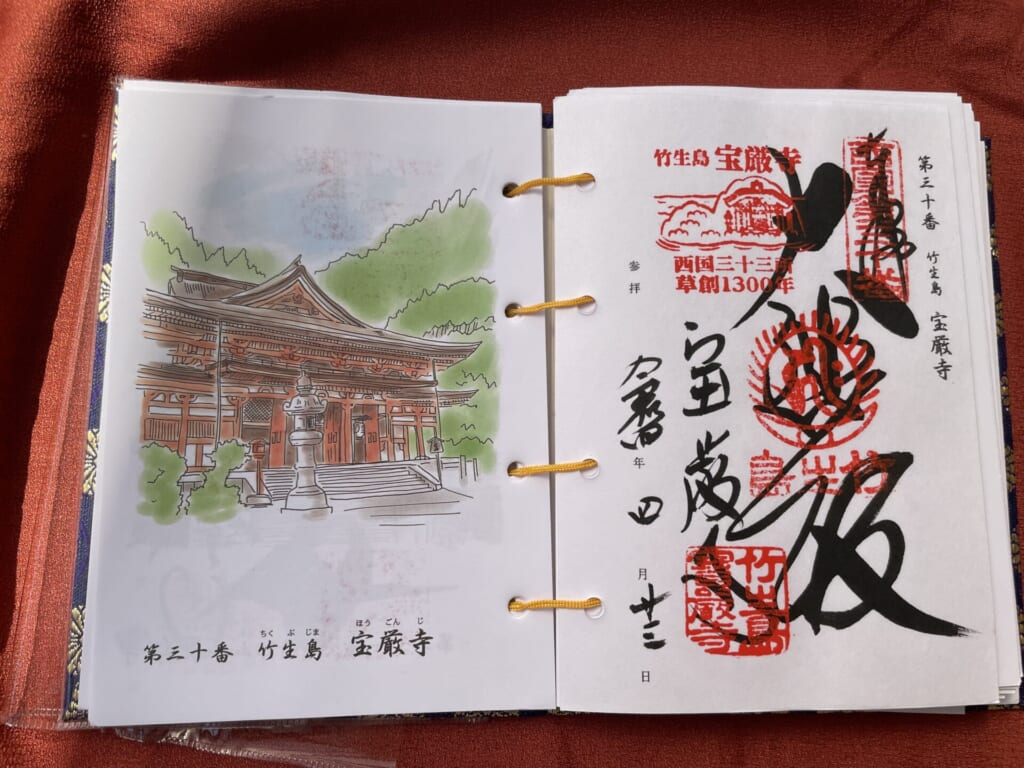 ちくぶじま ほうごんじ
第三十番 竹生島 宝厳寺
第三十番 竹生島 宝厳寺
竹生島 宝厳寺
西国三十三所
草創1300年
大 殿
竹生島
宝厳寺
竹生島
寳厳寺
参拝
年 四 月 日